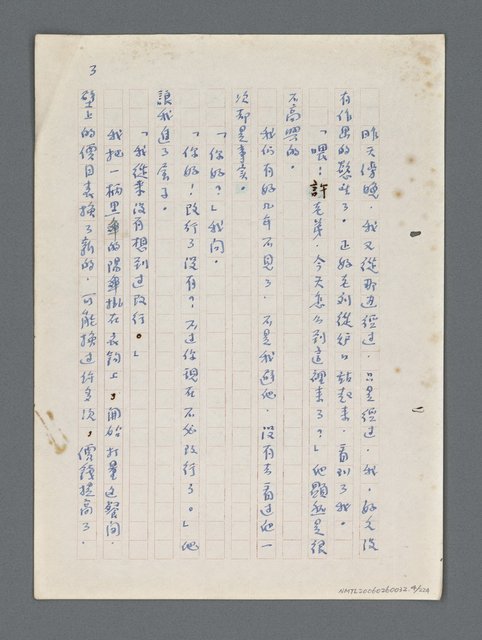 3
昨天傍晚，我又從那邊經過，只是經過，我，好久沒
有作出的鬆弛了。正好老刘從炉口站起來，看到了我。
「喂！許老弟，今天怎么到這裡來了？」他顯然是很
不高興的。
我們有好几年不見了，不是我避他，沒有去看过他一
次却是事实。
「你好？」我问。
「你好！改行了沒有？不过你現在不必改行了。」他
讓我進了屋子。
「我從來沒有想到过改行。」
我把一柄黑傘的陽傘掛在衣鈎上，開始打量这餐间，
壁上的價目表換了新的，可能換过許多次，價錢提高了，
NMTL20060260032 4/22A